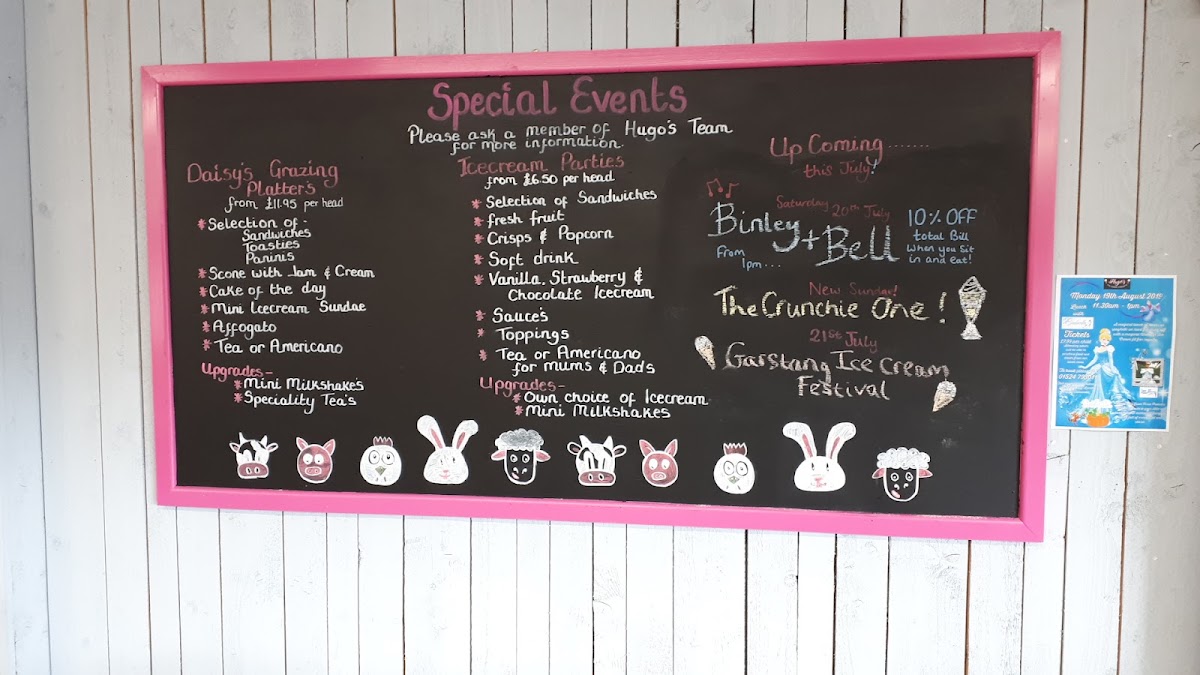 Special Events
Please ask a member of Hugo's Team
for more information.
Daisy's Grazing
Platters
from £11.95 per head
* Selection of -
Sandwiches
Toasties
Paninis
* Scone with Jam & Cream
* Cake of the day
* Mini Icecream Sundae
* Affogato
* Tea or Americano
Upgrades -
* Mini Milkshakes
* Speciality Tea's
Icecream Parties
from £6.50 per head
* Selection of Sandwiches
* fresh fruit
* Crisps & Popcorn
* Soft drink
* Vanilla, Strawberry &
Chocolate Icecream
* Sauce's
* Toppings
* Tea or Americano
for mums & Dad's
Upgrades -
* Own choice of Icecream
* Mini Milkshakes
Up Coming .......
this July!
Saturday 20th July
Binley
+ Bell
From
1pm...
10% OFF
total Bill
when you sit
in and eat!
New Sundae!
The Crunchie One!
21st July
Garstang Ice Cream
Festival
Hugo's
Monday 19th August 2019
11.30am - 1pm
Lunch
with
Tickets